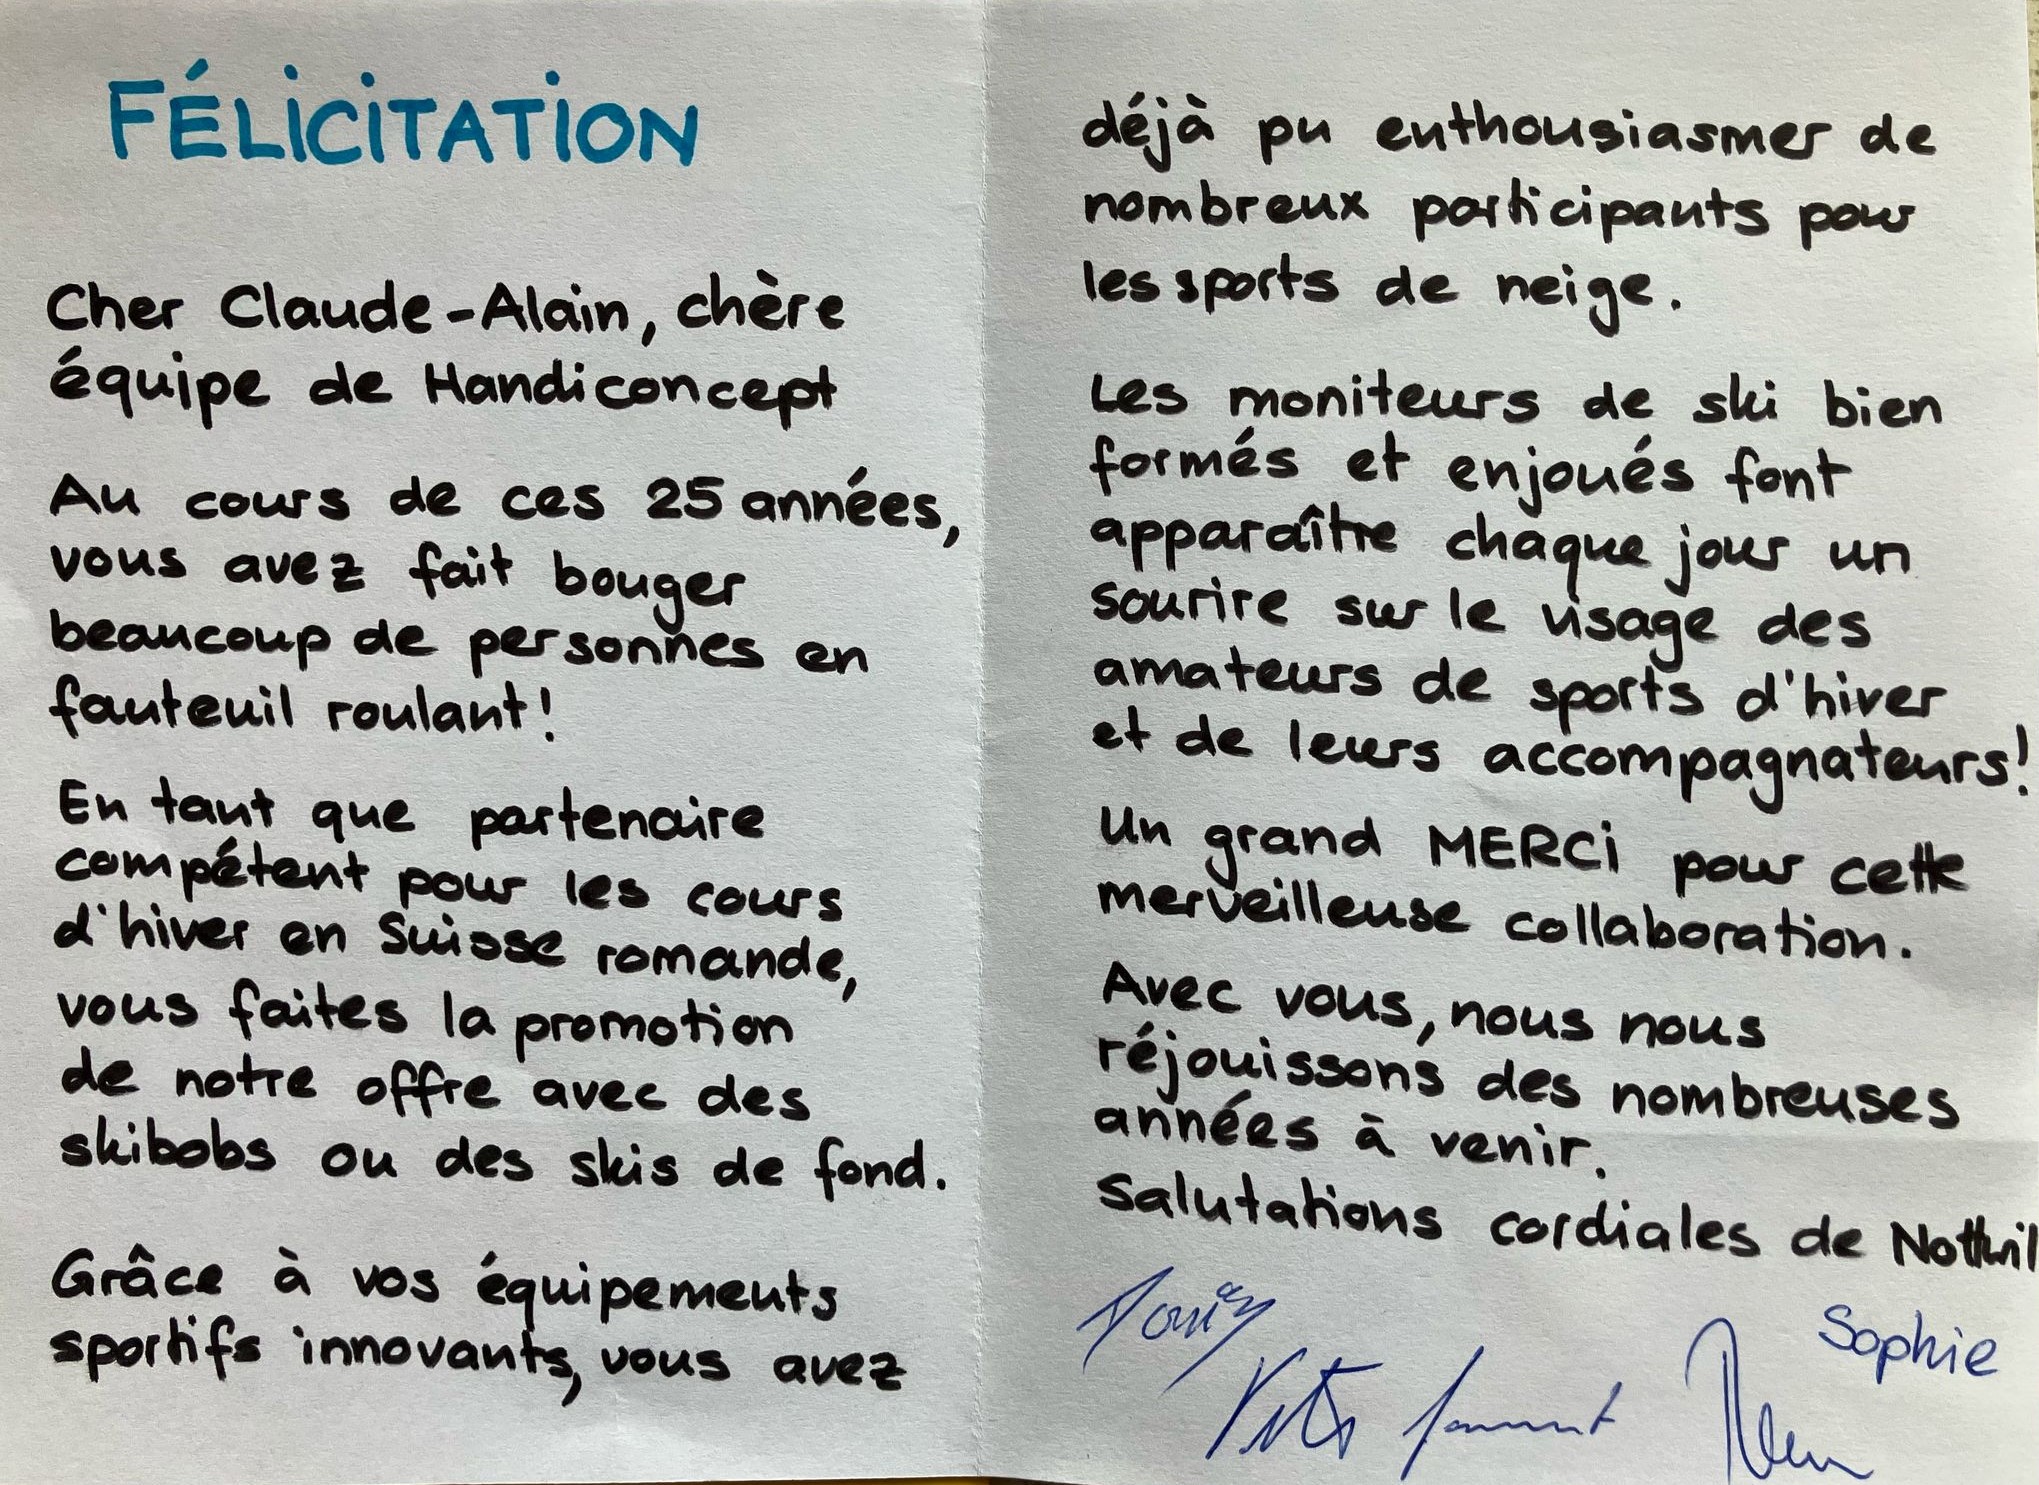 FÉLICITATION
Cher Claude-Alain, chère
équipe de Handiconcept
Au cours de ces 25 années,
vous avez fait bouger
beaucoup de personnes en
fauteuil roulant!
En tant que partenaire
compétent pour les cours
d'hiver en Suisse romande,
vous faites la promotion
de notre offre avec des
skibobs ou des skis de fond.
Grâce à vos équipements
sportifs innovants, vous avez
déjà pu enthousiasmer de
nombreux participants pour
les sports de neige.
Les moniteurs de ski bien
formés et enjoués font
apparaître chaque jour un
sourire sur le visage des
amateurs de sports d'hiver
et de leurs accompagnateurs!
Un grand MERCI pour cette
merveilleuse collaboration.
Avec vous, nous nous
réjouissons des nombreuses
années à venir.
Salutations cordiales de Nottwil
Sophie